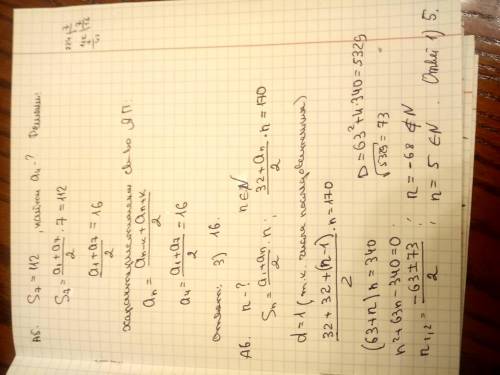 А5. S₇ = 112, найти a₄ - ? Решение:
S₇ = (a₁ + a₇)/2 · 7 = 112
(a₁ + a₇)/2 = 16
характеристическое св-во АП.
aₙ = (aₙ₋ₖ + aₙ₊ₖ)/2
a₄ = (a₁ + a₇)/2 = 16
ответ: 3) 16.
А6. n - ? n ∈ N
Sₙ = (a₁ + aₙ)/2 · n; (32 + aₙ)/2 · n = 170
d = 1 (т.к. числа последовательные)
(32 + 32 + (n-1))/2 · n = 170
(63 + n) n = 340
n² + 63n - 340 = 0. D = 63² + 4·340 = 5329
√5329 = 73
n₁,₂ = (-63 ± 73)/2 ; n = -68 ∉ N
n = 5 ∈ N. Ответ 1) 5.